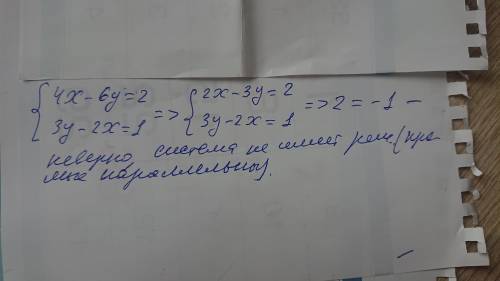 {4x-6y=2 => {2x-3y=2 => 2=-1 -
{3y-2x=1 {3y-2x=1
неверно, система не имеет реш. (пря-
мые параллельны).